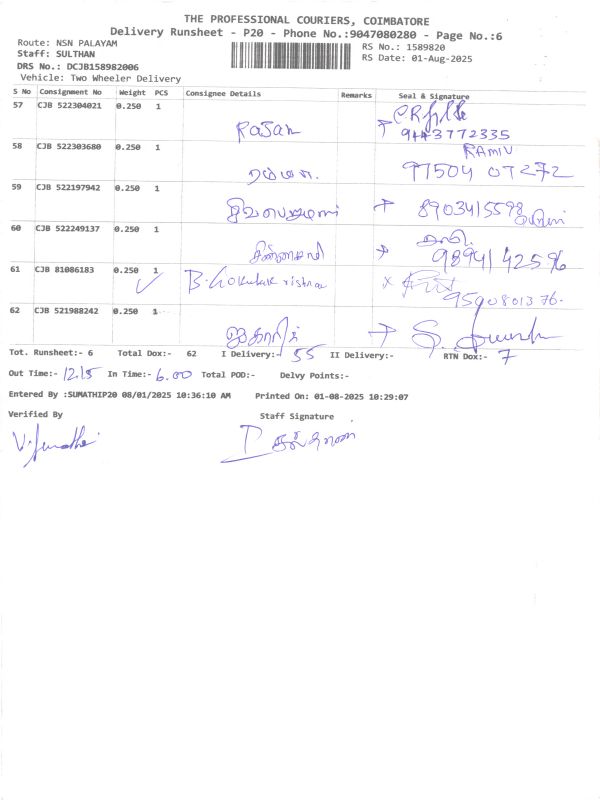 THE PROFESSIONAL COURIERS, COIMBATORE
Delivery Runsheet - P20 - Phone No.:9047080280 - Page No.:6
Route: NSN PALAYAM RS No.: 1589820
Staff: SULTHAN RS Date: 01-Aug-2025
DRS No.: DCJB158982006
Vehicle: Two Wheeler Delivery
S No Consignment No Weight PCS Consignee Details Remarks Seal & Signature
57 CJB 522304021 0.250 1
Rajan 9443772335
58 CJB 522303680 0.250 1 RAMIV
97504 07272
59 CJB 522197942 0.250 1
8903415598
60 CJB 522249137 0.250 1
98941 42596
61 CJB 81086183 0.250 1 B. Gokulakrishna
9590801376.
62 CJB 521988242 0.250 1
Tot. Runsheet:- 6 Total Dox:- 62 I Delivery:- 55 II Delivery:- RTN Dox:- 7
Out Time:- 12.15 In Time:- 6.00 Total POD:- Delvy Points:-
Entered By :SUMATHIP20 08/01/2025 10:36:10 AM Printed On: 01-08-2025 10:29:07
Verified By Staff Signature